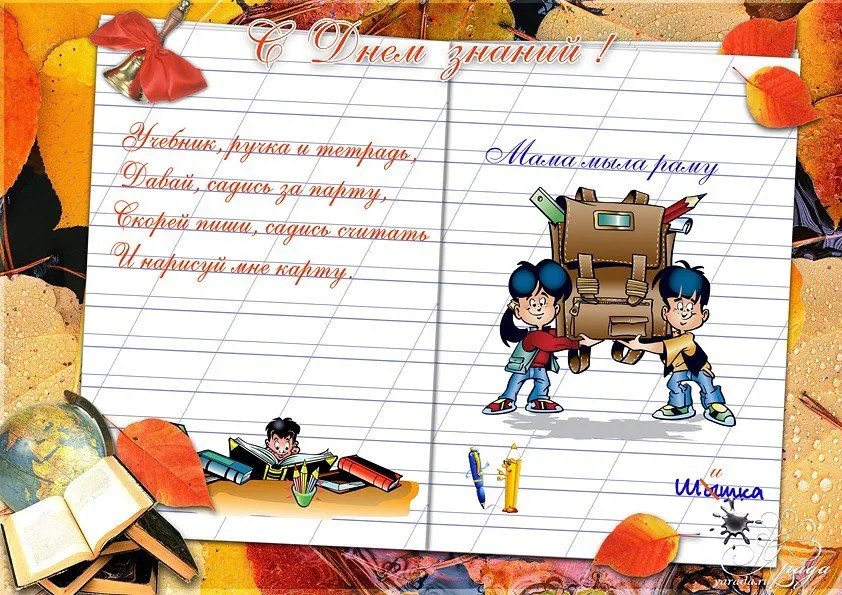 С Днем знаний !
Учебник, ручка и тетрадь,
Давай, садись за парту,
Скорей пиши, садись считать
И нарисуй мне карту.
Мама мыла раму
и
Шышка
yarada.ru